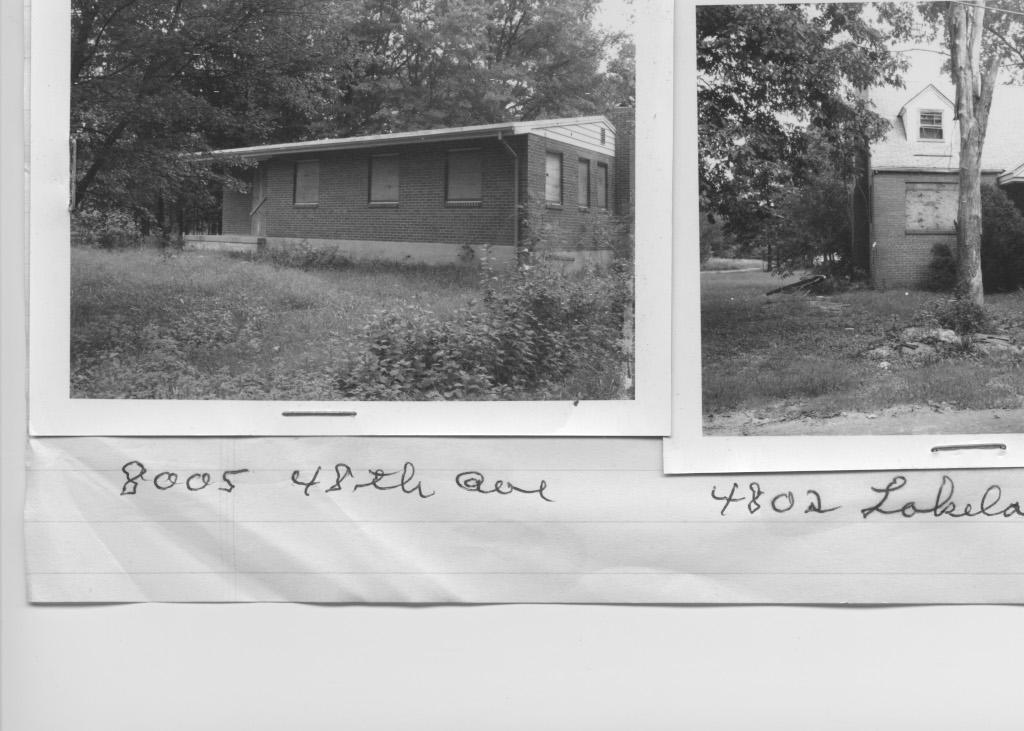 8005 48th Ave
4802 Lakela